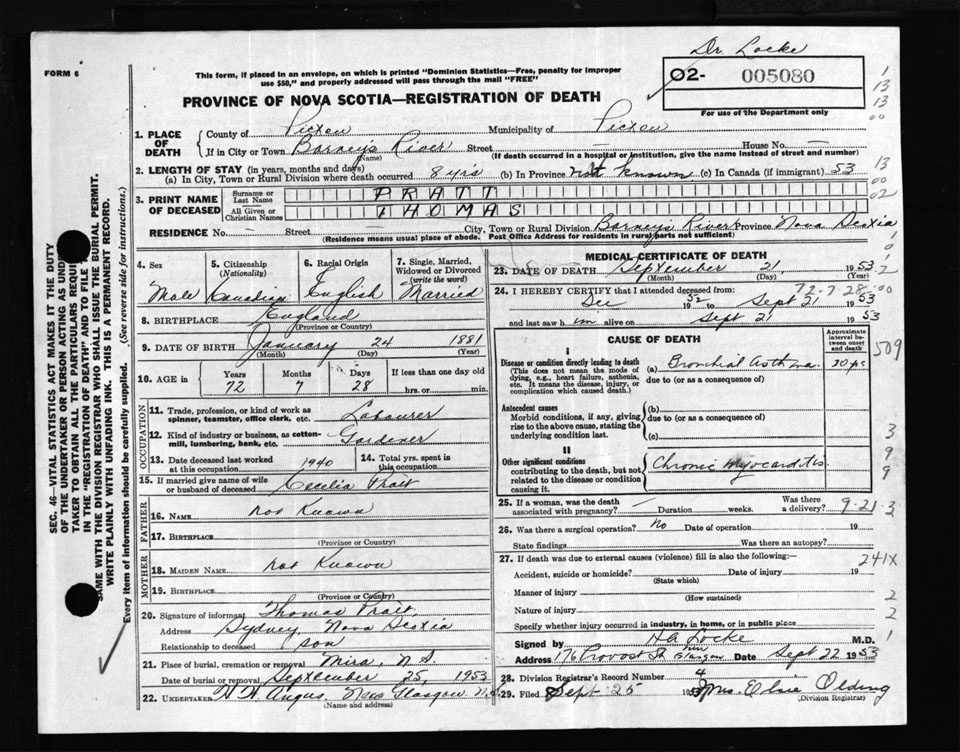 Dr. Locke
FORM 6
This form, if placed in an envelope, on which is printed "Dominion Statistics—Free, penalty for improper
use $50," and properly addressed will pass through the mail "FREE"
O2- 005080
For use of the Department only
PROVINCE OF NOVA SCOTIA—REGISTRATION OF DEATH
1. PLACE OF DEATH
County of Pictou Municipality of Pictou
If in City or Town Barneys River Street — House No. —
(Name) (If death occurred in a hospital or institution, give the name instead of street and number)
2. LENGTH OF STAY (in years, months and days)
(a) In City, Town or Rural Division where death occurred 8 yrs (b) In Province not known (c) In Canada (if immigrant) 53
3. PRINT NAME OF DECEASED
Surname or Last Name PRATT
All Given or Christian Names THOMAS
RESIDENCE No. — Street — City, Town or Rural Division Barneys River Province Nova Scotia
(Residence means usual place of abode. Post Office Address for residents in rural parts not sufficient)
4. Sex Male
5. Citizenship (Nationality) Canadian
6. Racial Origin English
7. Single, Married, Widowed or Divorced (write the word) Married
8. BIRTHPLACE England
(Province or Country)
9. DATE OF BIRTH January 24 1881
(Month) (Day) (Year)
10. AGE in Years 72 Months 7 Days 28 If less than one day old hrs. or min.
OCCUPATION
11. Trade, profession, or kind of work as spinner, teamster, office clerk, etc. Labourer
12. Kind of industry or business, as cotton-mill, lumbering, bank, etc. Gardener
13. Date deceased last worked at this occupation 1940
14. Total yrs. spent in this occupation
15. If married give name of wife or husband of deceased Cecelia Pratt
FATHER
16. NAME Not Known
17. BIRTHPLACE
(Province or Country)
MOTHER
18. MAIDEN NAME Not Known
19. BIRTHPLACE
(Province or Country)
20. Signature of informant Thomas Pratt
Address Sydney, Nova Scotia
Relationship to deceased son
21. Place of burial, cremation or removal Mira, N.S
Date of burial or removal September 25, 1953
22. UNDERTAKER Angus, New Glasgow N.S.
(Name and address)
MEDICAL CERTIFICATE OF DEATH
23. DATE OF DEATH September 21 1953
(Month) (Day) (Year)
72-7-28
24. I HEREBY CERTIFY that I attended deceased from:
Dec 1952 to Sept 21 1953
and last saw him alive on Sept 21 1953
CAUSE OF DEATH
Approximate interval between onset and death
I
Disease or condition directly leading to death
(This does not mean the mode of dying, e.g., heart failure, asthenia, etc. It means the disease, injury, or complication which caused death.)
(a) Bronchial asthma
due to (or as a consequence of)
Antecedent causes
Morbid conditions, if any, giving rise to the above cause, stating the underlying condition last.
(b)
due to (or as a consequence of)
(c)
II
Other significant conditions
contributing to the death, but not related to the disease or condition causing it.
Chronic Myocarditis
25. If a woman, was the death associated with pregnancy? — Duration weeks. Was there a delivery?
9-21-3
26. Was there a surgical operation? No Date of operation 19
State findings Was there an autopsy?
27. If death was due to external causes (violence) fill in also the following:—
Accident, suicide or homicide? Date of injury 19
(State which)
Manner of injury
(How sustained)
Nature of injury
Specify whether injury occurred in industry, in home, or in public place
Signed by HA Locke M.D.
Address 176 Provost St Glasgow Date Sept 22 1953
28. Division Registrar's Record Number 4
29. Filed Sept 25 1953 Mrs. Elsie Olding
(Division Registrar)
1
13
13
00
13
00
02
509
3
9
9
241X
2
2
1
SEC. 46—VITAL STATISTICS ACT MAKES IT THE DUTY
OF THE UNDERTAKER OR PERSON ACTING AS
TAKER TO OBTAIN ALL THE PARTICULARS
IN THE "REGISTRATION OF DEATH" AND TO FILE
SAME WITH THE DIVISION REGISTRAR WHO SHALL ISSUE THE BURIAL PERMIT.
WRITE PLAINLY WITH UNFADING INK. THIS IS A PERMANENT RECORD.
Every item of information should be carefully supplied. (See reverse side for instructions.)